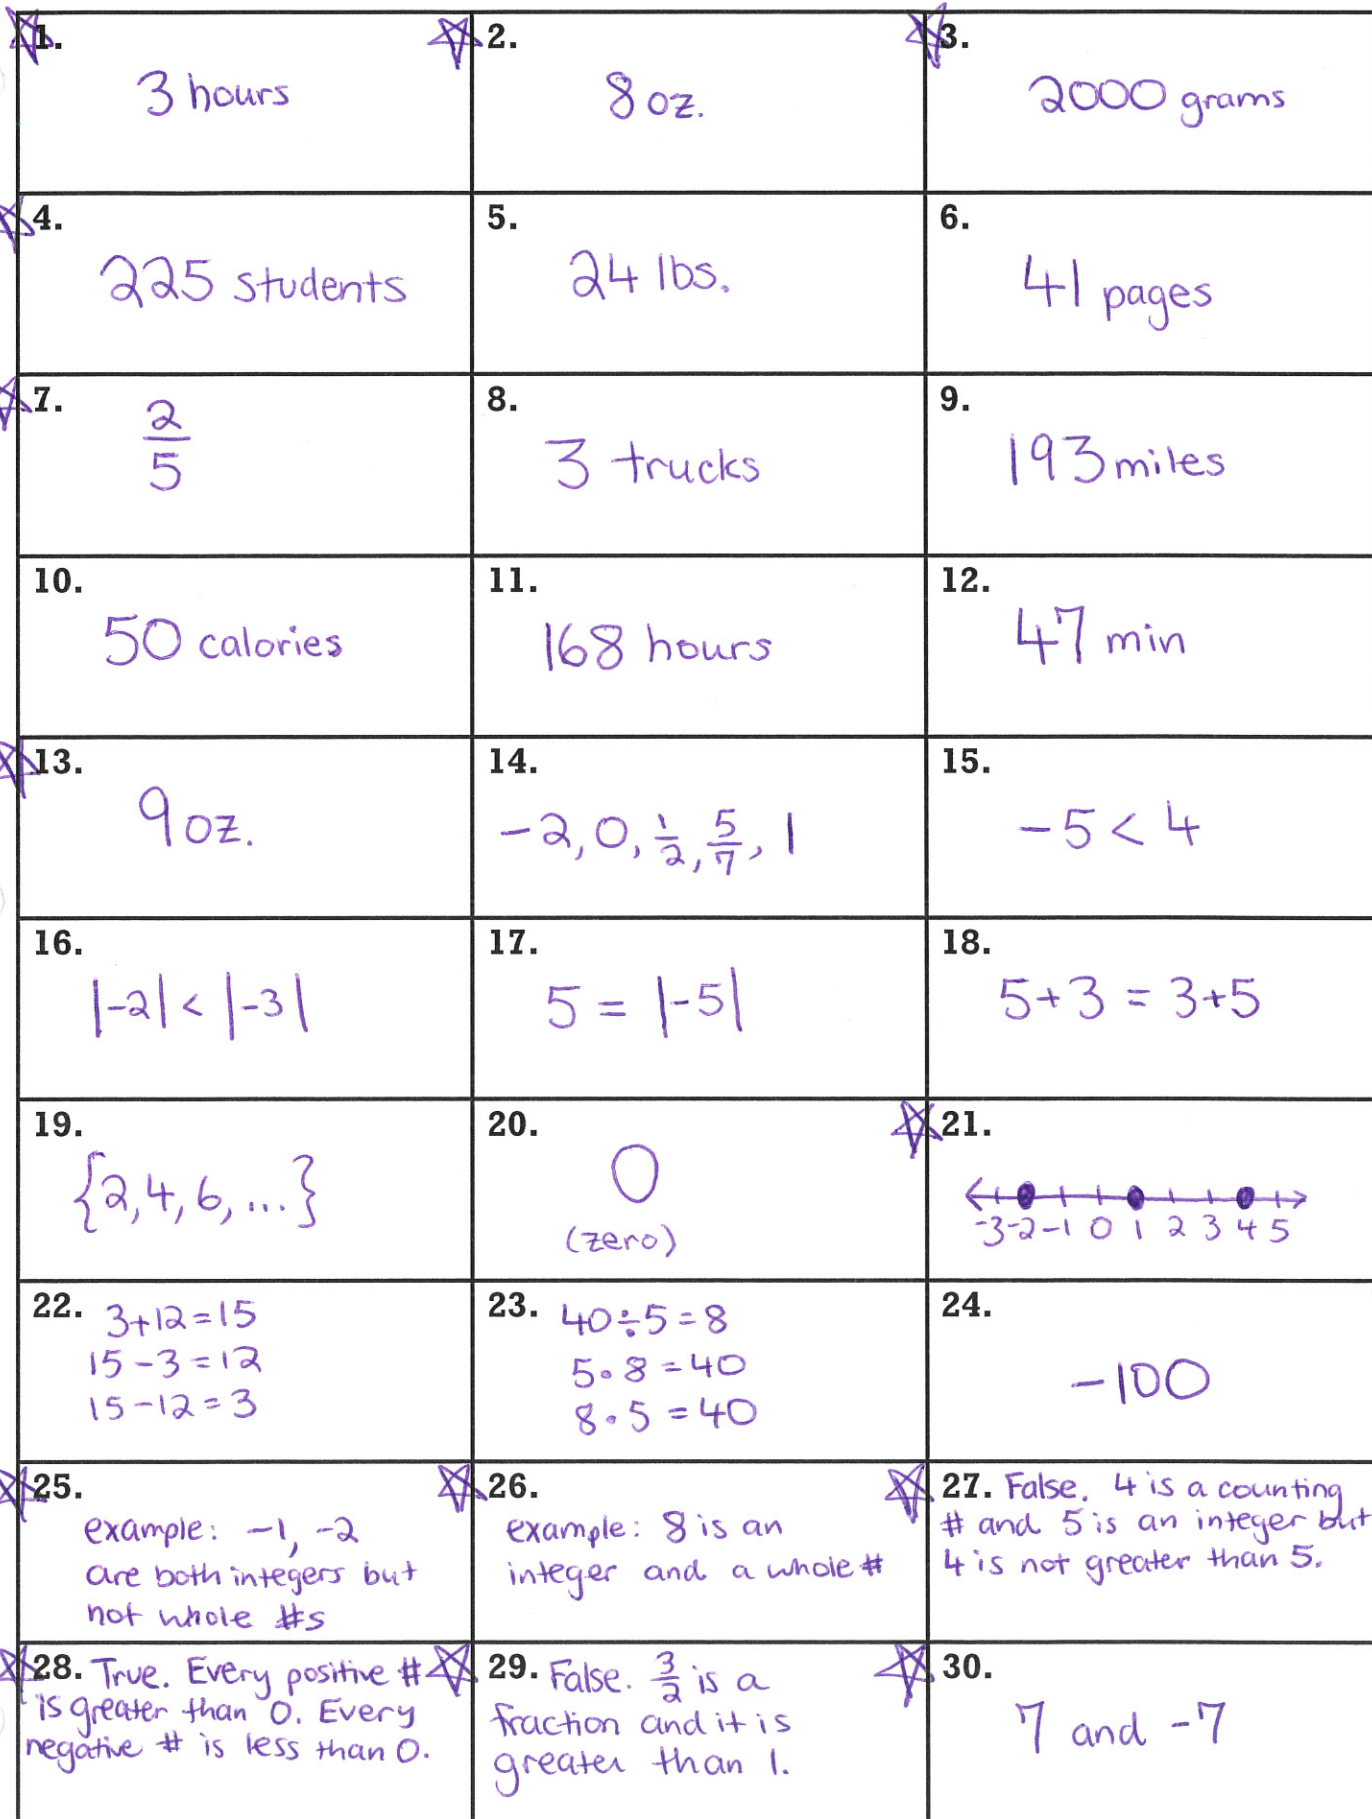 1.
3 hours
2.
8 oz.
3.
2000 grams
4.
225 students
5.
24 lbs.
6.
41 pages
7.
2/5
8.
3 trucks
9.
193 miles
10.
50 calories
11.
168 hours
12.
47 min
13.
9 oz.
14.
-2, 0, 1/2, 5/7, 1
15.
-5 < 4
16.
|-2| < |-3|
17.
5 = |-5|
18.
5+3 = 3+5
19.
{2,4,6,...}
20.
0
(zero)
21.
-3 -2 -1 0 1 2 3 4 5
22. 3+12=15
15-3=12
15-12=3
23. 40÷5=8
5•8=40
8•5=40
24.
-100
25.
example: -1, -2
are both integers but
not whole #s
26.
example: 8 is an
integer and a whole #
27. False. 4 is a counting
# and 5 is an integer but
4 is not greater than 5.
28. True. Every positive #
is greater than 0. Every
negative # is less than 0.
29. False. 3/2 is a
fraction and it is
greater than 1.
30.
7 and -7